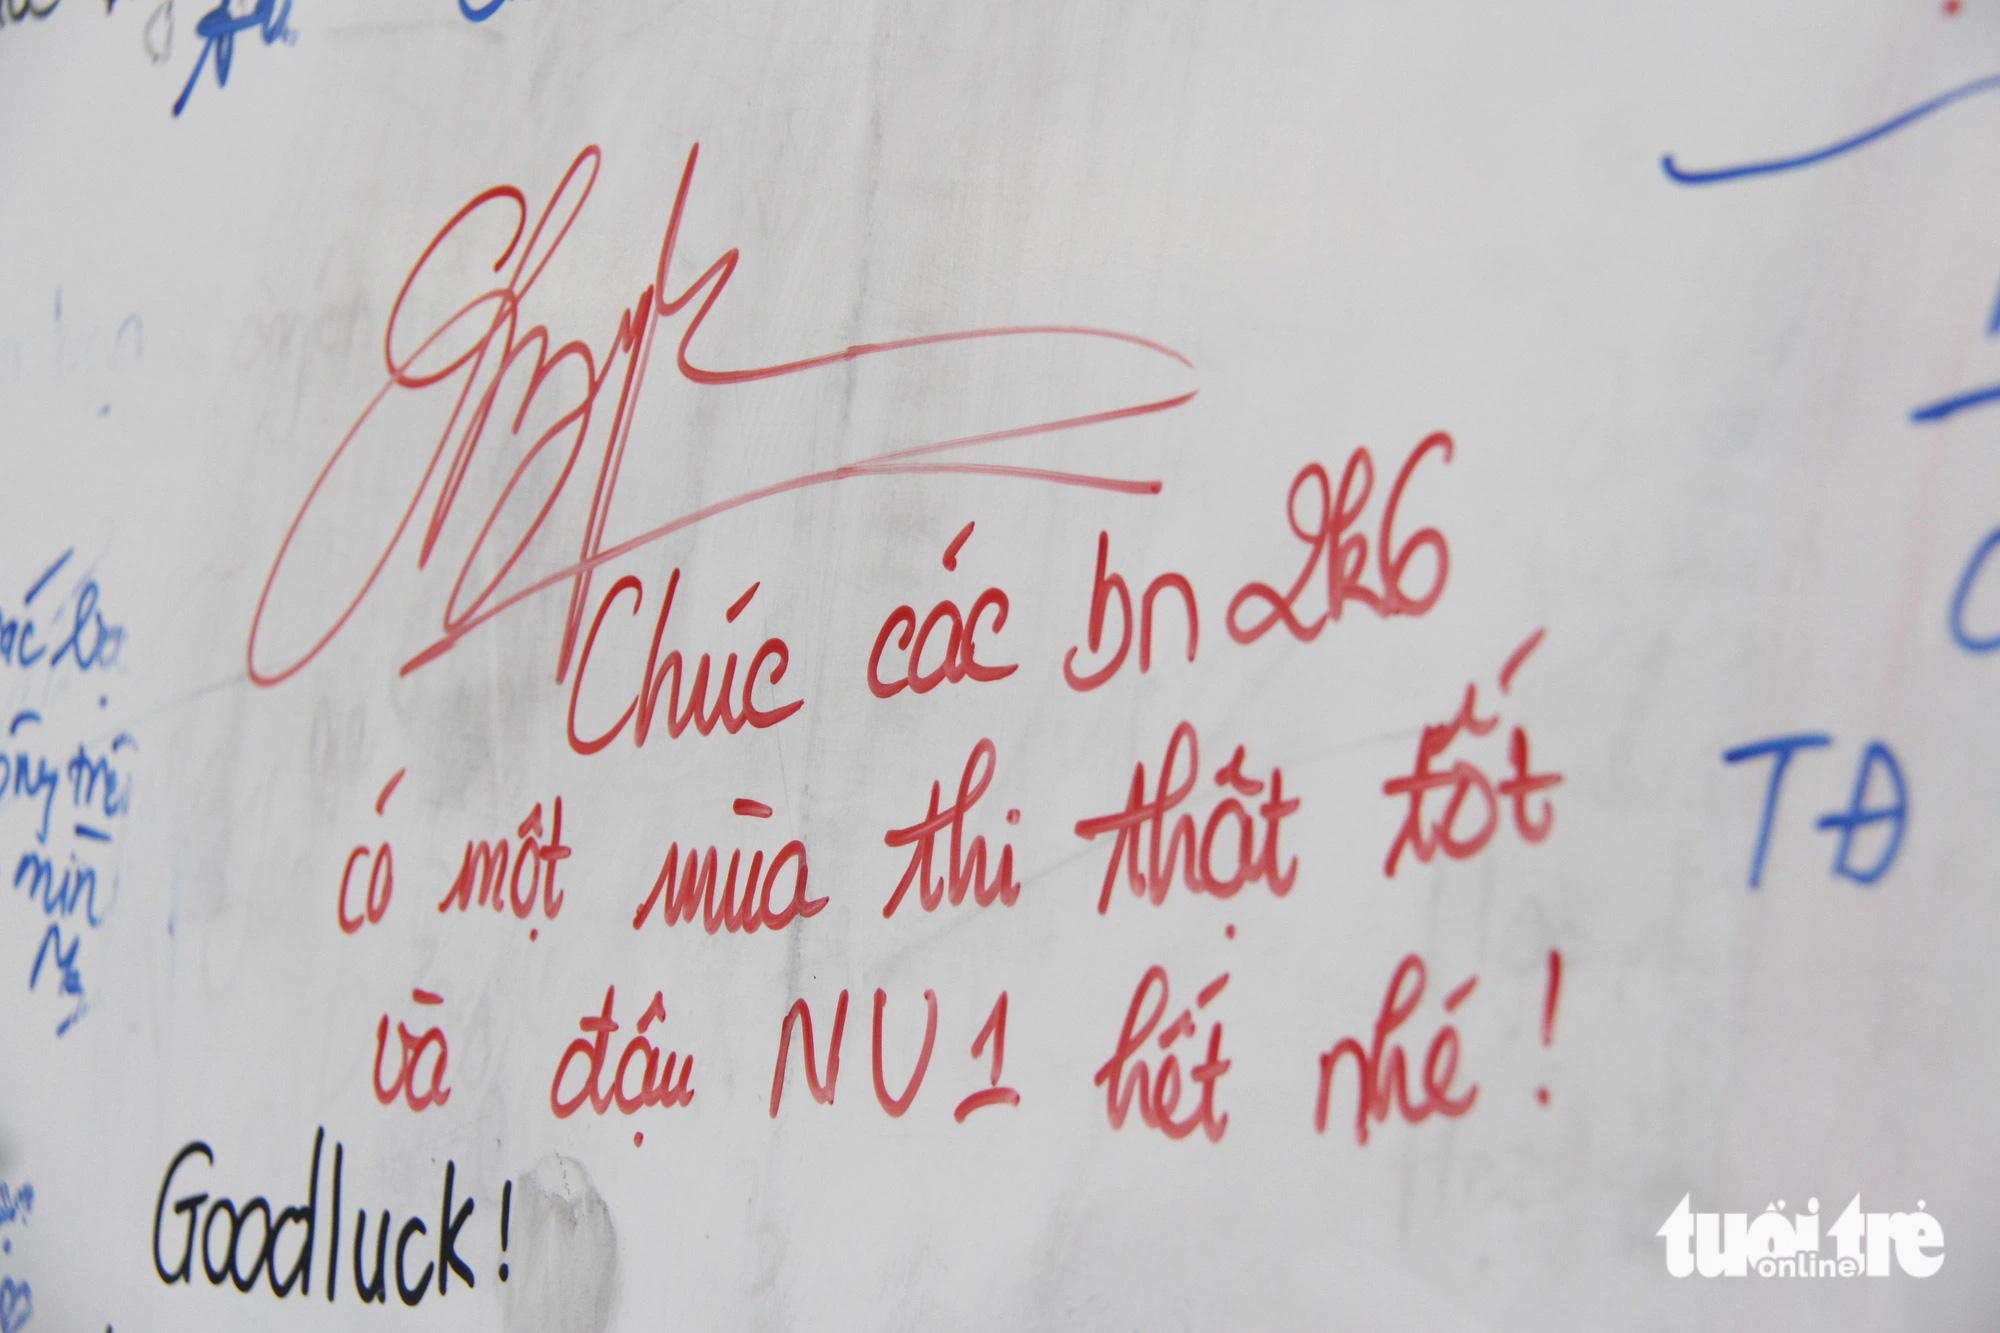 Chúc các bn 2k6
có một mùa thi thật tốt
và đậu NV1 hết nhé!
Goodluck!
TĐ
tuổi trẻ
online